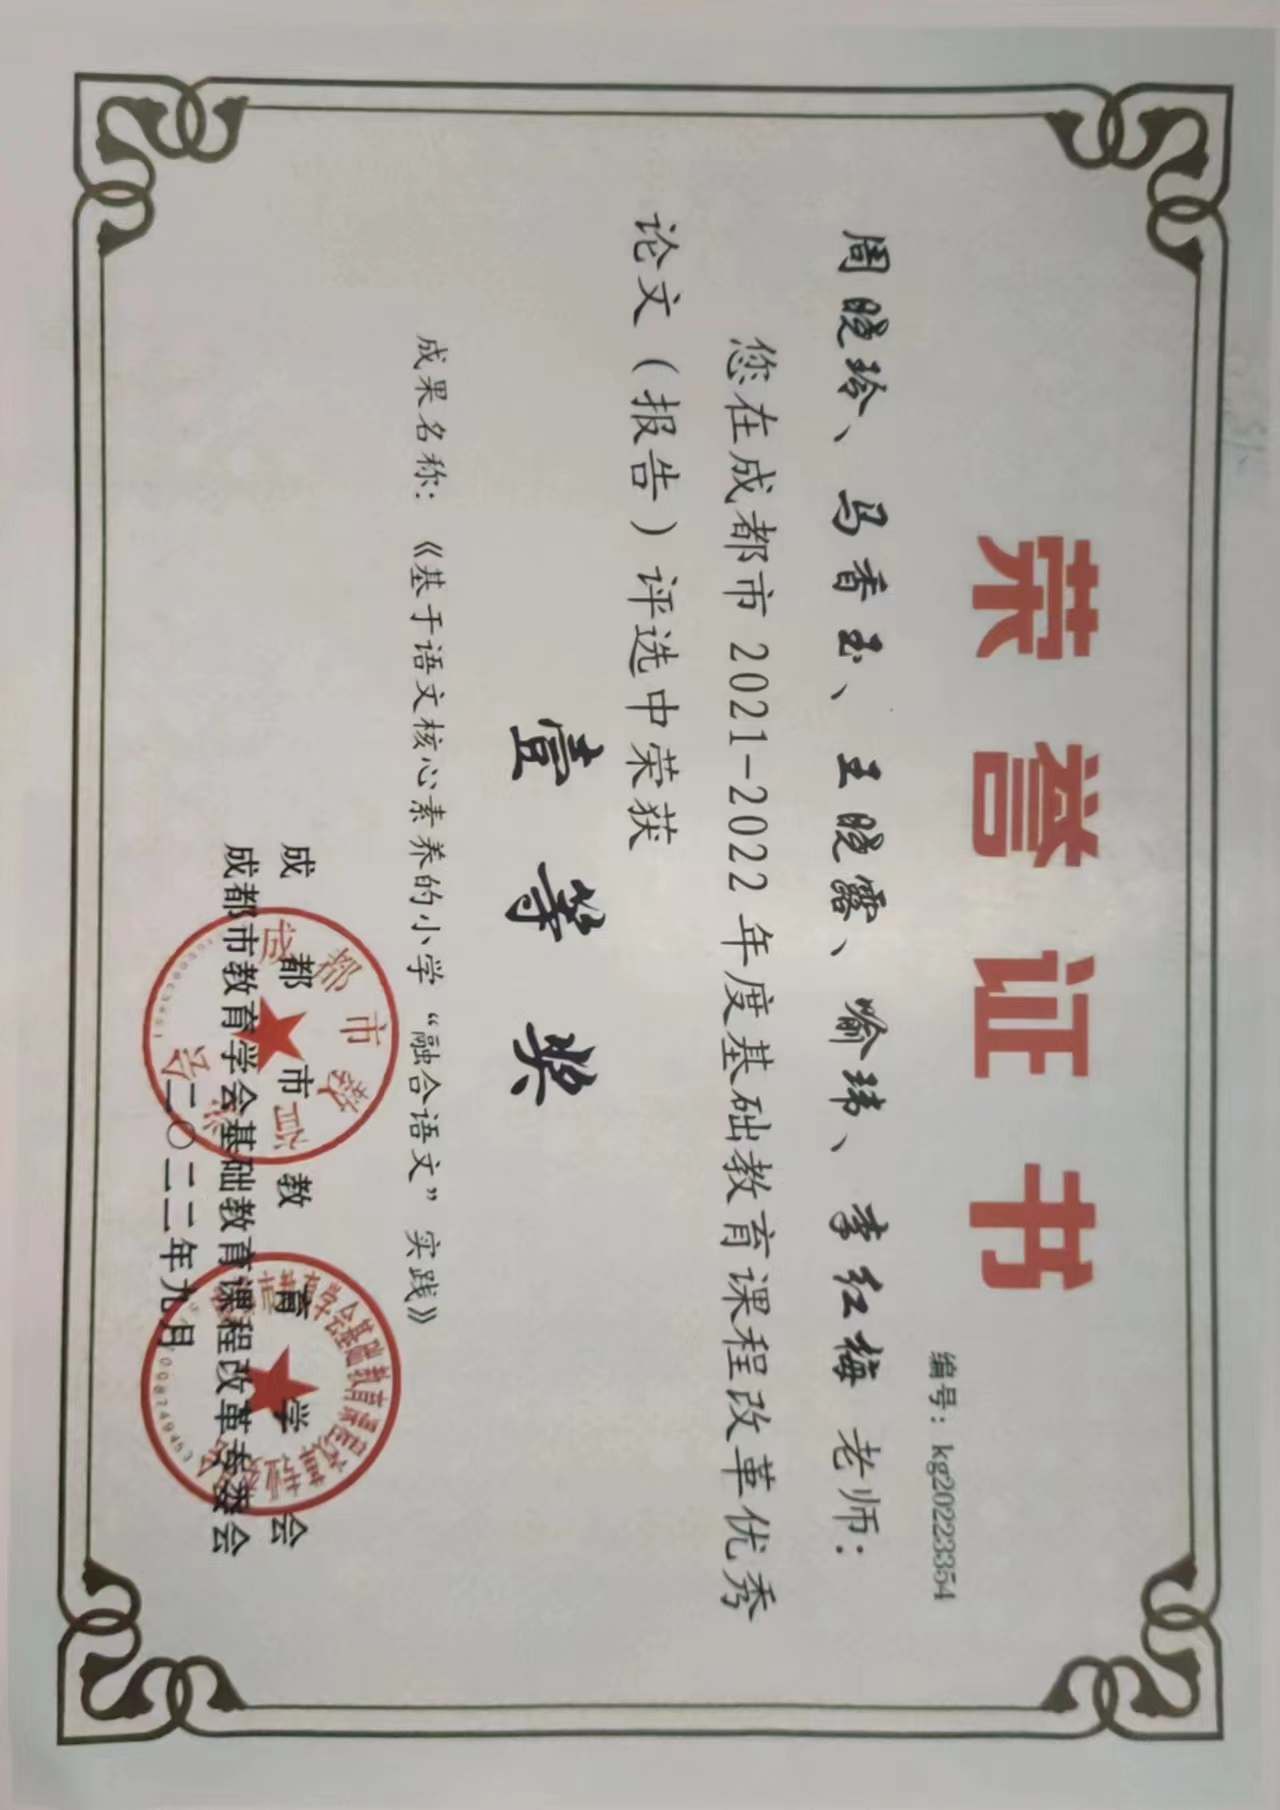 荣誉证书
编号：kg20223354
周晓玲、马香玉、王晓露、喻玮、李红梅 老师：
您在成都市 2021-2022 年度基础教育课程改革优秀
论文（报告）评选中荣获
壹等奖
成果名称：《基于语文核心素养的小学“融合语文”实践》
成都市教育学会
成都市教育学会基础教育课程改革专委会
二〇二二年九月